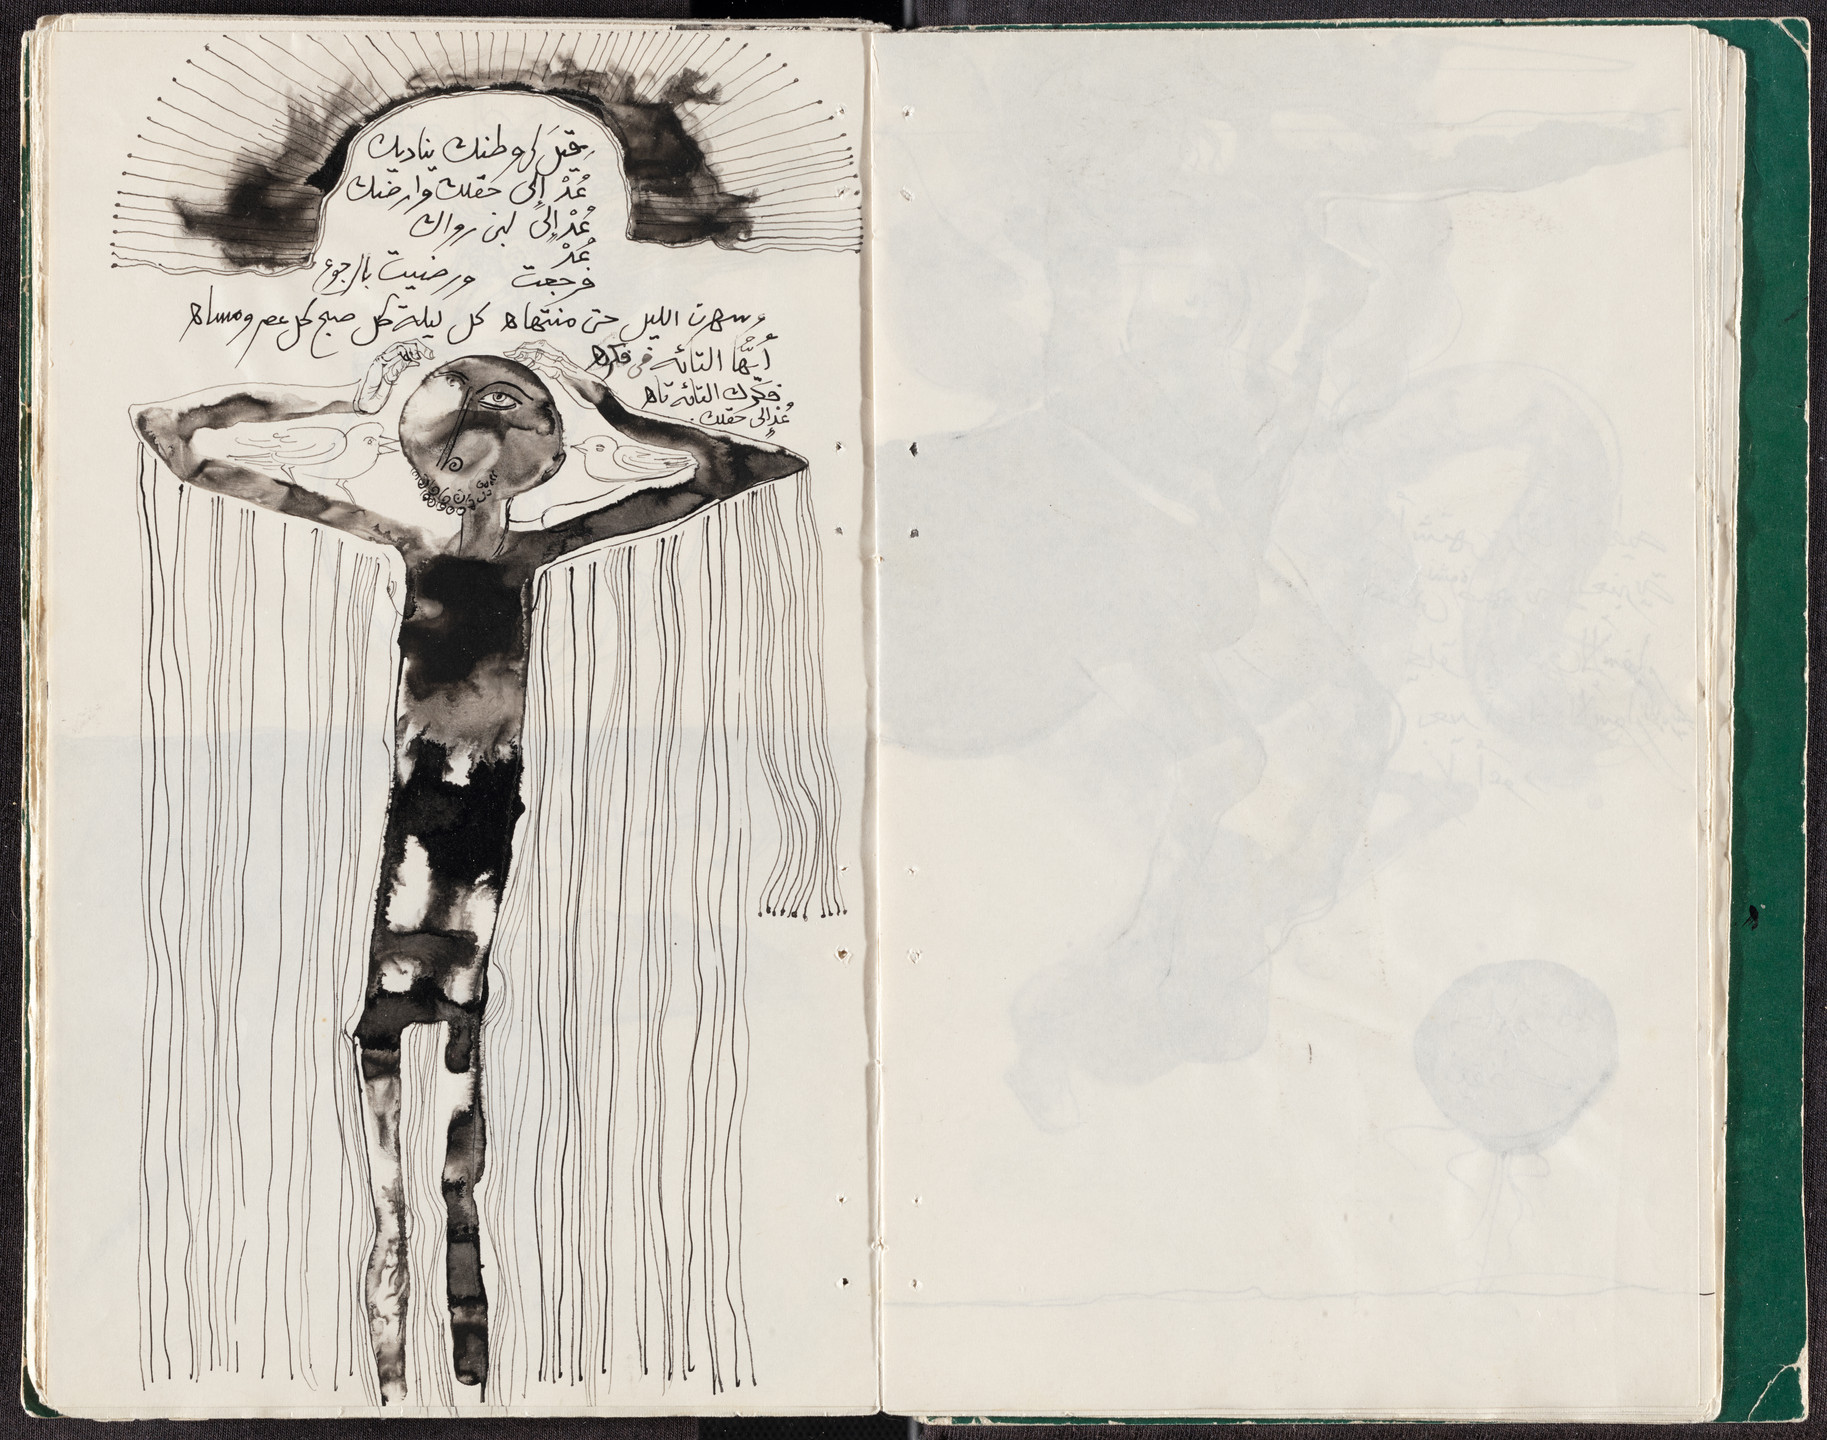 قيل لي وطنك يناديك
عُدْ إلى حقلك وارضك
عُدْ إلى لبن رواك
عُدْ
فرجعت ورضيت بالرجوع
وسهرت الليل حتى منتهاه كل ليلة كل صبح كل عصر ومساه
أيُّها التائه في فكره
فكرك التائه تاه
عُد إلى حقلك.